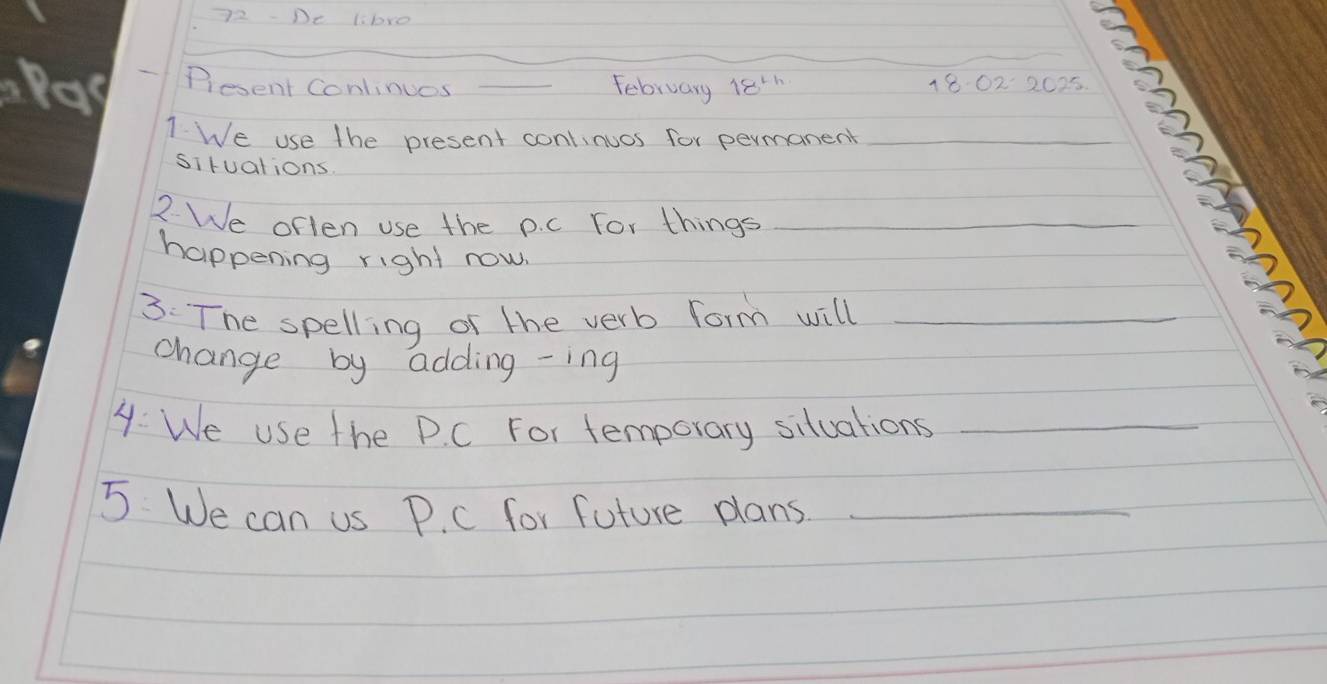 72 - De libro
Pag
- Present Continuos — February 18th 18.02.2025.
1. We use the present continuos for permanent
situations.
2. We often use the p.c For things
happening right now.
3. The spelling of the verb form will
change by adding -ing
4. We use the P.C For temporary situations
5. We can us P.C for future plans.